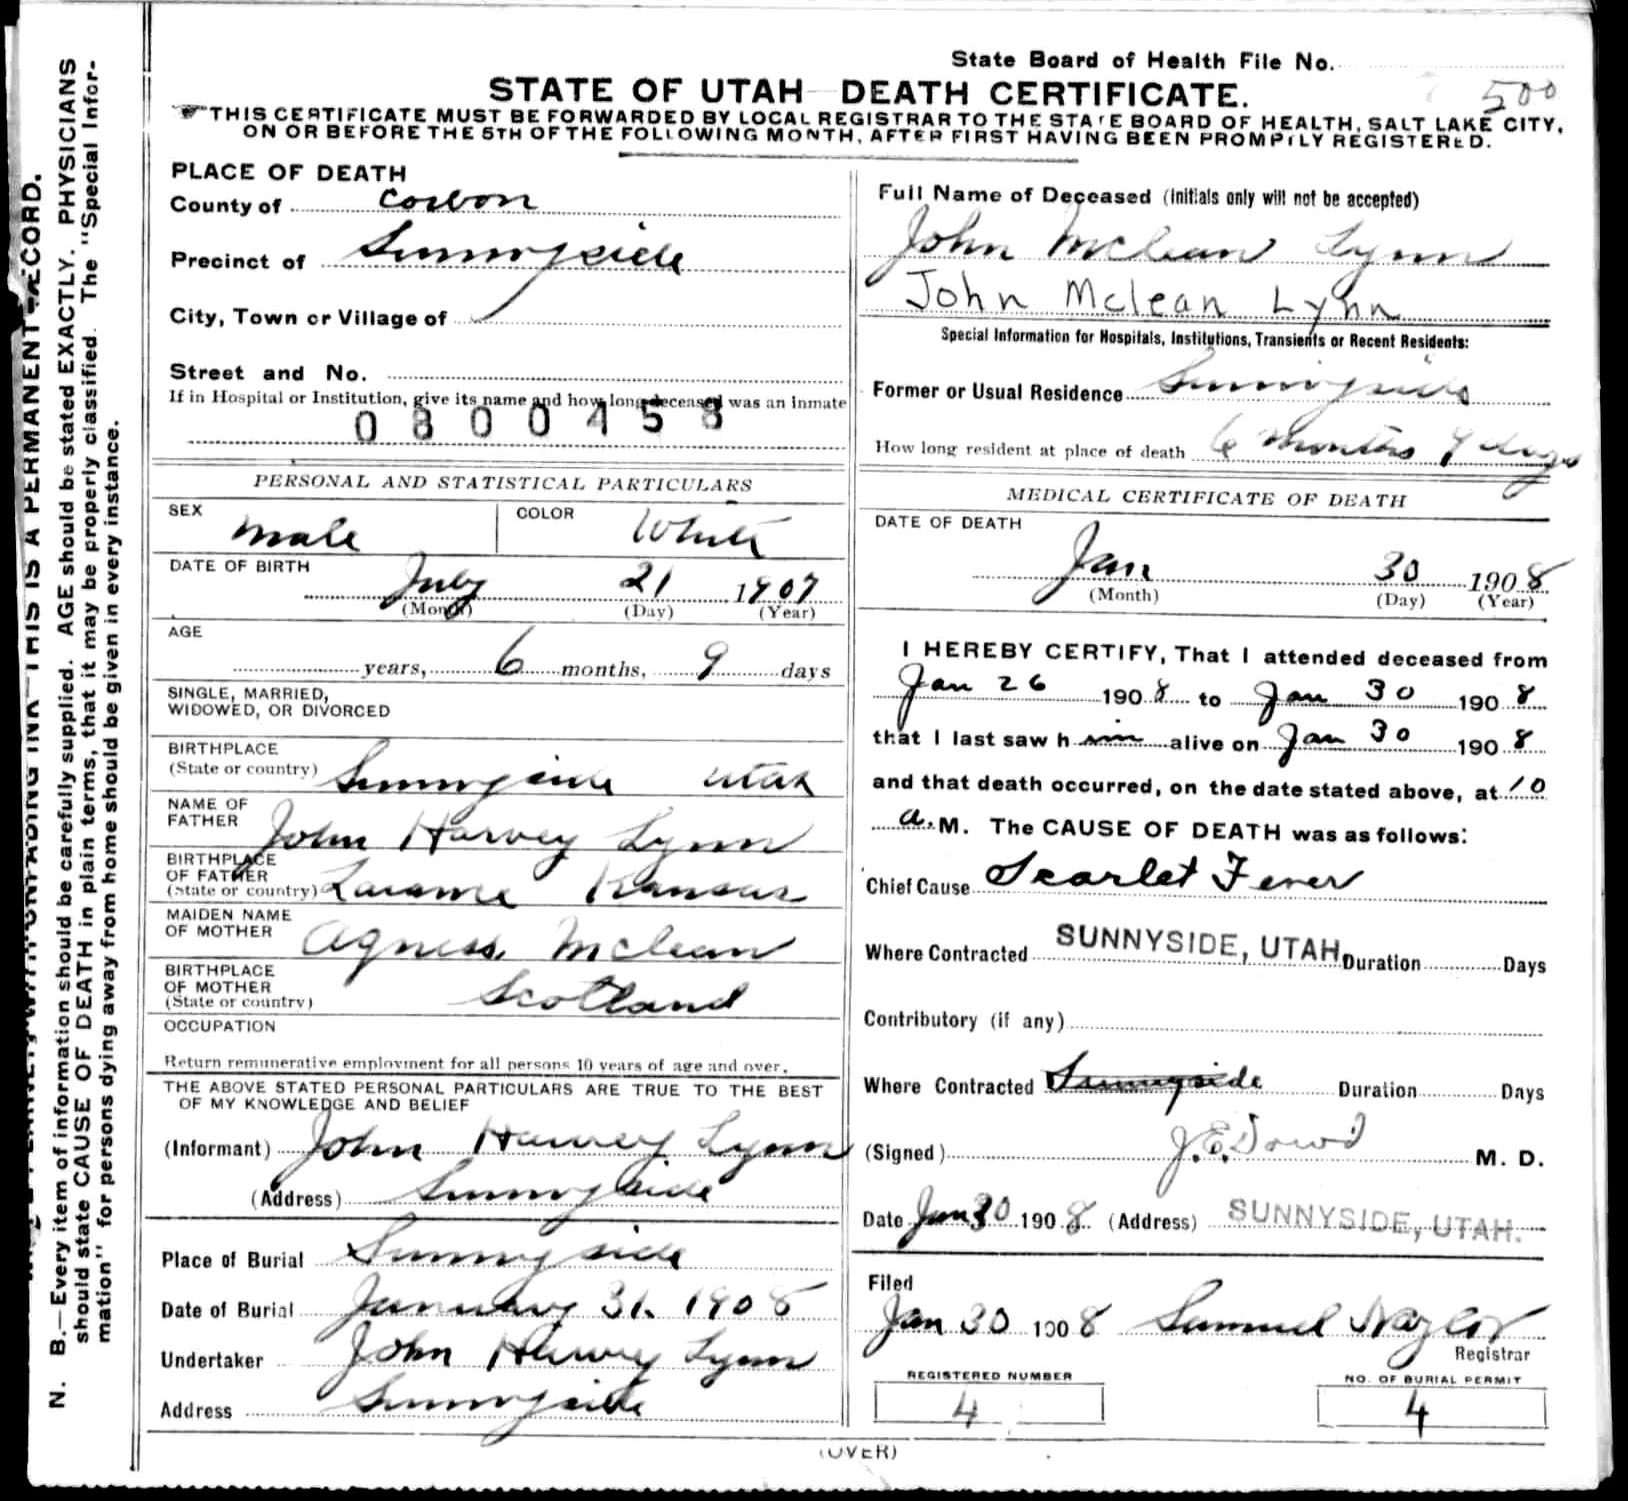 State Board of Health File No.
500
STATE OF UTAH DEATH CERTIFICATE.
THIS CERTIFICATE MUST BE FORWARDED BY LOCAL REGISTRAR TO THE STATE BOARD OF HEALTH, SALT LAKE CITY,
ON OR BEFORE THE 5TH OF THE FOLLOWING MONTH, AFTER FIRST HAVING BEEN PROMPTLY REGISTERED.
PLACE OF DEATH
County of Carbon
Precinct of Sunnyside
City, Town or Village of
Street and No.
If in Hospital or Institution, give its name and how long deceased was an inmate
0800458
PERSONAL AND STATISTICAL PARTICULARS
SEX male COLOR White
DATE OF BIRTH July 21 1907
(Month) (Day) (Year)
AGE
years, 6 months, 9 days
SINGLE, MARRIED,
WIDOWED, OR DIVORCED
BIRTHPLACE
(State or country) Sunnyside Utah
NAME OF
FATHER John Harvey Lynn
BIRTHPLACE
OF FATHER
(State or country) Kansas
MAIDEN NAME
OF MOTHER Agness Mclean
BIRTHPLACE
OF MOTHER
(State or country) Scotland
OCCUPATION
Return remunerative employment for all persons 10 years of age and over.
THE ABOVE STATED PERSONAL PARTICULARS ARE TRUE TO THE BEST
OF MY KNOWLEDGE AND BELIEF
(Informant) John Harvey Lynn
(Address) Sunnyside
Place of Burial Sunnyside
Date of Burial January 31. 1908
Undertaker John Harvey Lynn
Address Sunnyside
Full Name of Deceased (Initials only will not be accepted)
John Mclean Lynn
John Mclean Lynn
Special Information for Hospitals, Institutions, Transients or Recent Residents:
Former or Usual Residence Sunnyside
How long resident at place of death 6 Months 9 days
MEDICAL CERTIFICATE OF DEATH
DATE OF DEATH
Jan 30 1908
(Month) (Day) (Year)
I HEREBY CERTIFY, That I attended deceased from
Jan 26 1908 to Jan 30 1908
that I last saw him alive on Jan 30 1908
and that death occurred, on the date stated above, at 10
a.M. The CAUSE OF DEATH was as follows:
Chief Cause Scarlet Fever
Where Contracted SUNNYSIDE, UTAH. Duration Days
Contributory (if any)
Where Contracted Sunnyside Duration Days
(Signed) J.E. Dowd M. D.
Date Jan 30 1908 (Address) SUNNYSIDE, UTAH.
Filed
Jan 30 1908 Samuel Naylor
Registrar
REGISTERED NUMBER
4
NO. OF BURIAL PERMIT
4
(OVER)
N. B.—Every item of information should be carefully supplied. AGE should be stated EXACTLY. PHYSICIANS
should state CAUSE OF DEATH in plain terms, that it may be properly classified. The "Special Infor-
mation" for persons dying away from home should be given in every instance.
INK—THIS IS A PERMANENT RECORD.